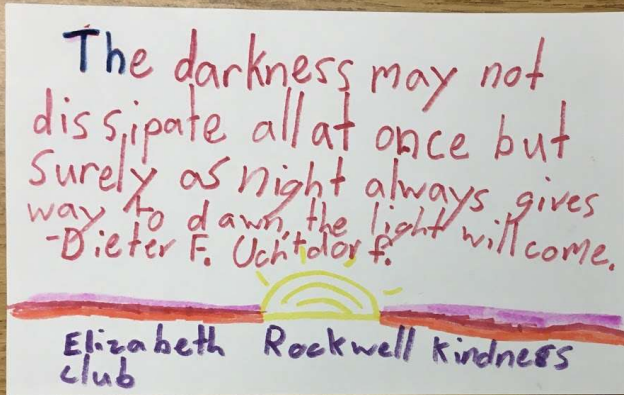 The darkness may not
dissipate all at once but
surely as night always gives
way to dawn, the light will come.
-Dieter F. Uchtdorf.
Elizabeth Rockwell Kindness
club